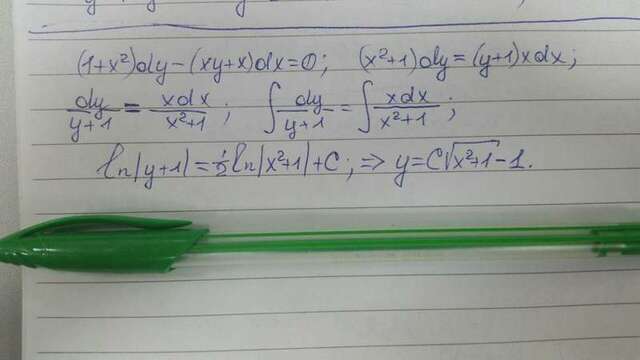 (1+x²)dy-(xy+x)dx=0; (x²+1)dy=(y+1)xdx;
dy/y+1 = xdx/x²+1; ∫dy/y+1 = ∫xdx/x²+1;
ln|y+1|=½ln|x²+1|+C; ⇒ y=C√x²+1-1.